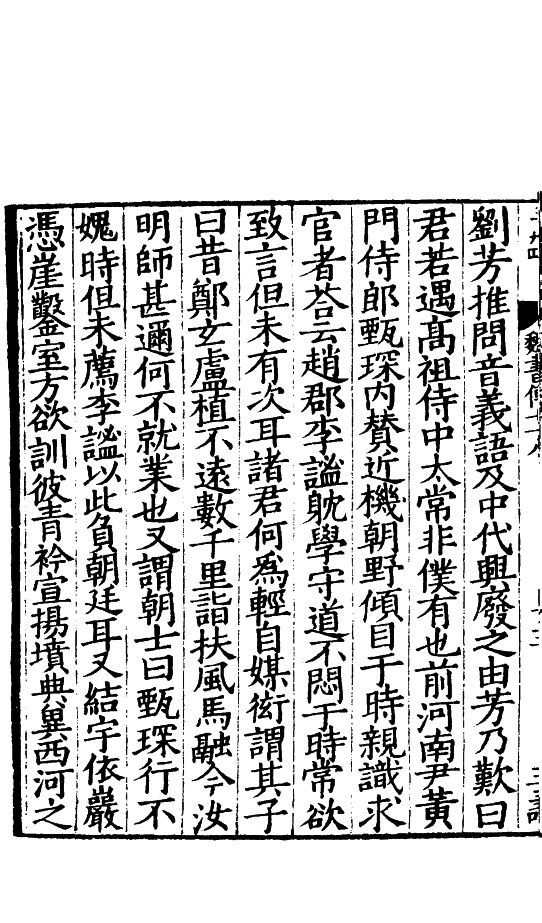 劉芳推問音義語及中代興廢之由芳乃歎曰
君若遇高祖侍中太常非僕有也前河南尹黃
門侍郎甄琛内賛近機朝野傾目于時親識求
官者荅云趙郡李謐躭學守道不悶于時常欲
致言但未有次耳諸君何為輕自媒衒謂其子
曰昔鄭玄盧植不遠數千里詣扶風馬融今汝
明師甚邇何不就業也又謂朝士曰甄琛行不
媿時但未薦李謐以此負朝廷耳又結宇依巖
憑崖鑿室方欲訓彼青衿宣揚墳典冀西河之